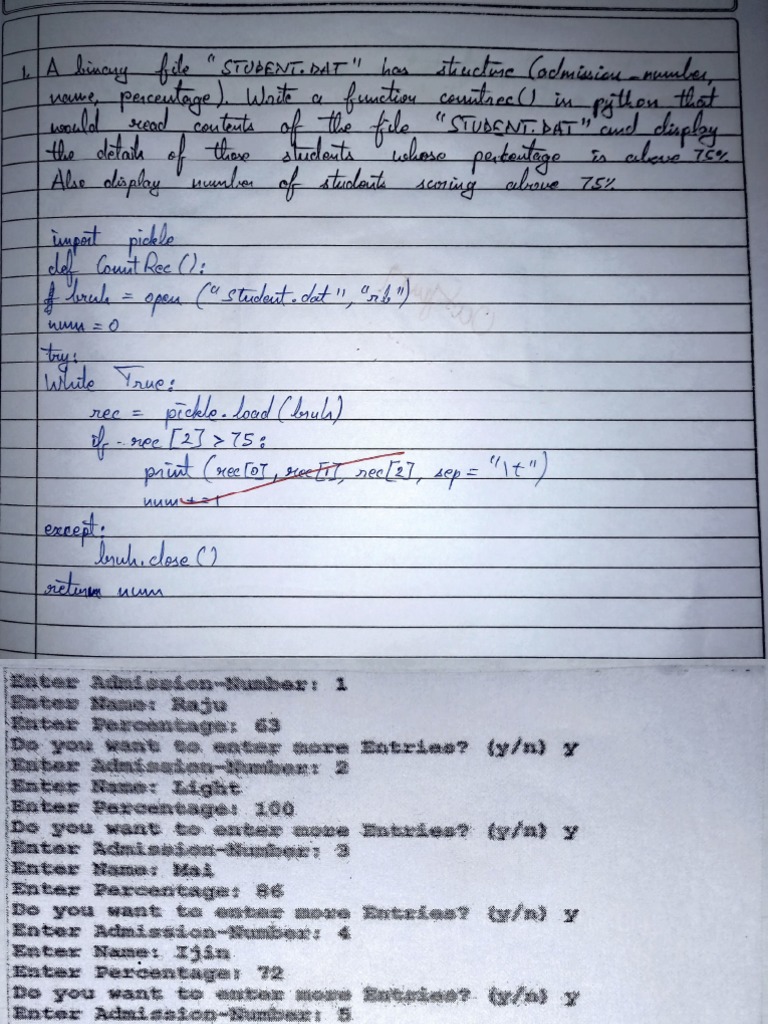 1. A binary file "STUDENT.DAT" has structure (admission_number,
name, percentage). Write a function countrec() in python that
would read contents of the file "STUDENT.DAT" and display
the details of those students whose percentage is above 75%.
Also display number of students scoring above 75%
import pickle
def CountRec():
bruh = open ("student.dat", "rb")
num = 0
try:
While True:
rec = pickle.load(bruh)
if rec[2] > 75:
print (rec[0], rec[1], rec[2], sep = "\t")
num += 1
except:
bruh.close()
return num
Enter Admission-Number: 1
Enter Name: Raju
Enter Percentage: 63
Do you want to enter more Entries? (y/n) y
Enter Admission-Number: 2
Enter Name: Light
Enter Percentage: 100
Do you want to enter more Entries? (y/n) y
Enter Admission-Number: 3
Enter Name: Mai
Enter Percentage: 86
Do you want to enter more Entries? (y/n) y
Enter Admission-Number: 4
Enter Name: Ijin
Enter Percentage: 72
Do you want to enter more Entries? (y/n) y
Enter Admission-Number: 5